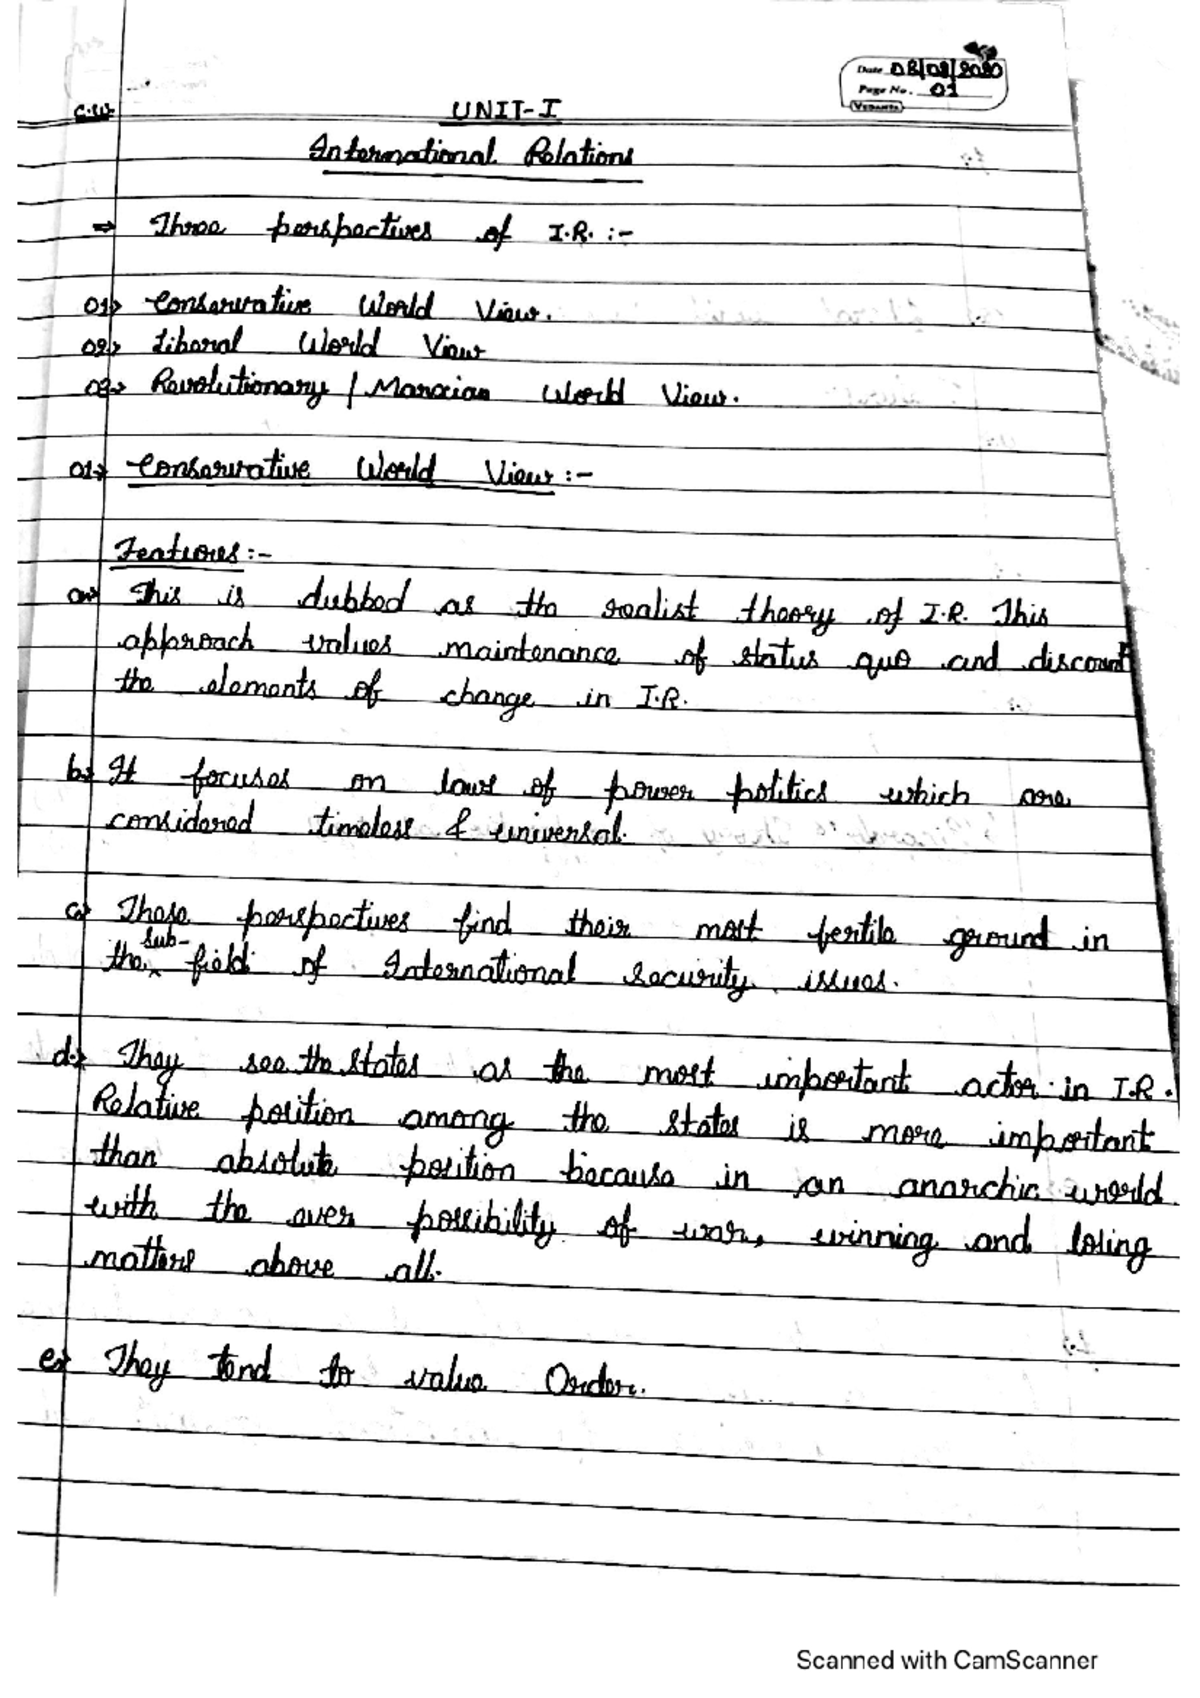 Date 08/02/2020
Page No. 01
VEDANTA
C.W
UNIT-I
International Relations
⇒ Three perspectives of I.R. :-
01> Conservative World View.
02> Liberal World View
03> Revolutionary / Marxian World View.
01> Conservative World View :-
Features :-
a> This is dubbed as the realist theory of I.R. This
approach values maintenance of status quo and discount
the elements of change in I.R.
b> It focuses on laws of power politics which are
considered timeless & universal.
c> These perspectives find their most fertile ground in
the sub-field of International security issues.
d> They see the states as the most important actor in I.R.
Relative position among the states is more important
than absolute position because in an anarchic world
with the ever possibility of war, winning and losing
matters above all.
e> They tend to value Order.
Scanned with CamScanner